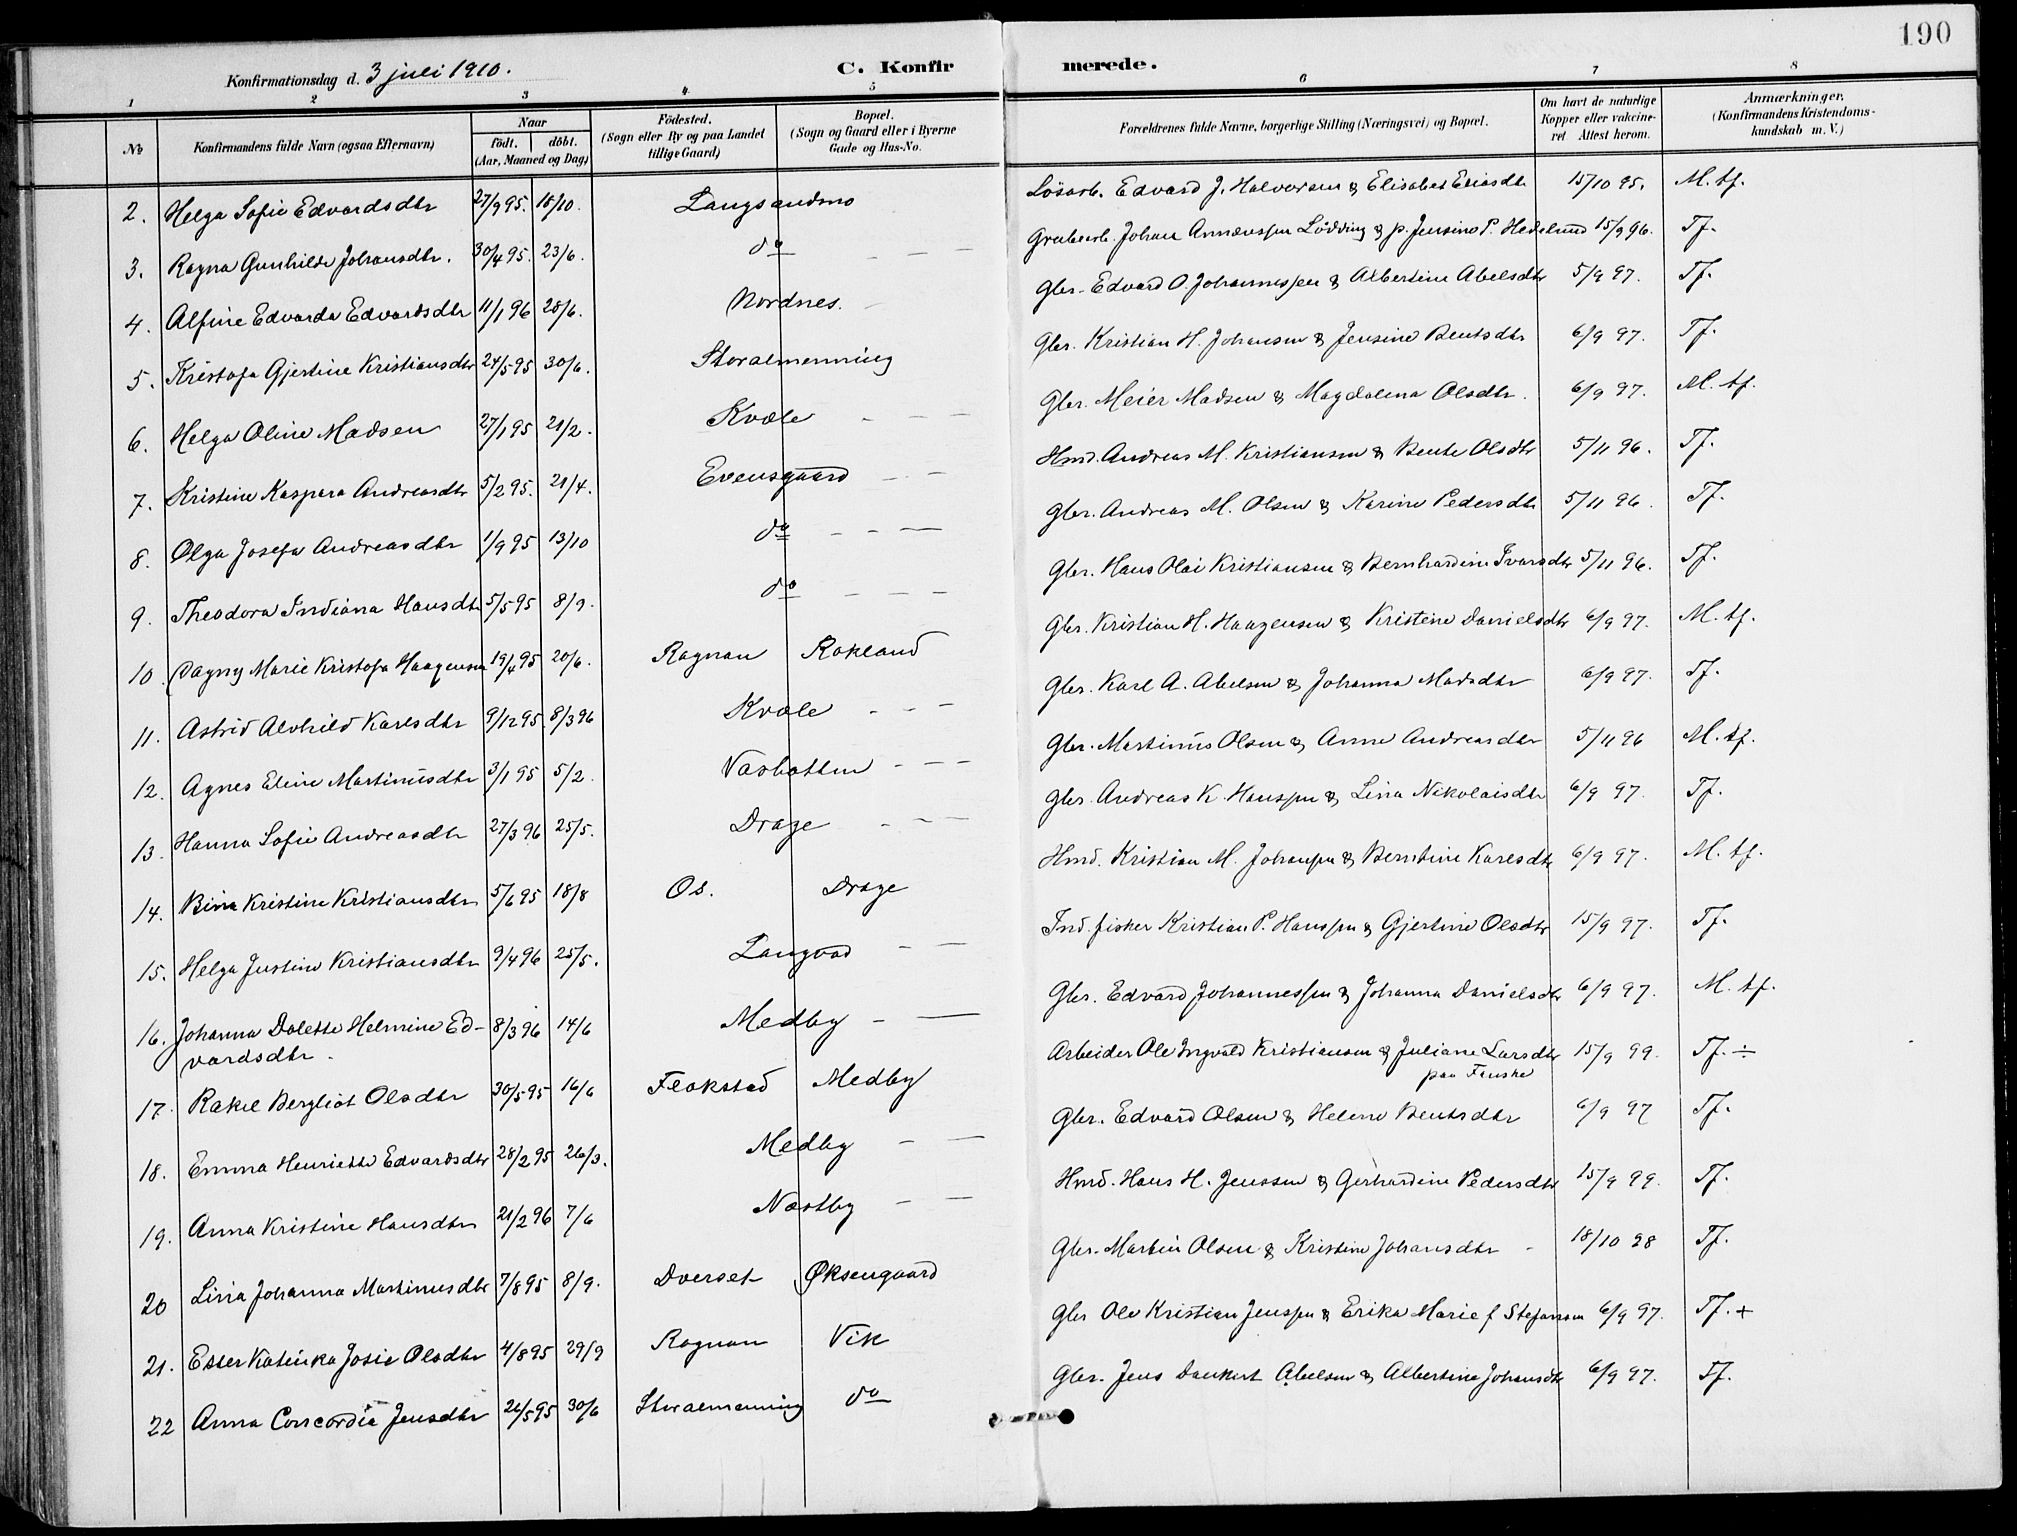 190
Konfirmationsdag d. 3 juli 1910.
C. Konfirmerede.
1 2 3 4 5 6 7 8
No
Konfirmandens fulde Navn (ogsaa Efternavn)
Naar
födt. döbt.
(Aar, Maaned og Dag)
Födested.
(Sogn eller By og paa Landet
tillige Gaard)
Bopæl.
(Sogn og Gaard eller i Byerne
Gade og Hus-No.
Forældrenes fulde Navne, borgerlige Stilling (Næringsvei) og Bopæl.
Om havt de naturlige
Kopper eller vakcine-
ret Attest herom.
Anmærkninger,
(Konfirmandens Kristendoms-
kundskab m. V.)
2. Helga Sofie Edvardsdtr 27/9 95. 18/10. Langsandmo Lösarb. Edvard J. Halvorsen & Elisabet Eliasdtr 15/10 95. M. tf.
3. Ragna Gunhilde Johansdtr. 30/4 95. 23/6. do — — Grubearb. Johan Lödding & p. Jensine P. Hedelund 15/9 96. Tf.
4. Alfine Edvarda Edvardsdtr 11/1 96 28/6. Nordnes. — Gbr. Edvard O. Johannessen & Albertine Abelsdtr 5/9 97. Tf.
5. Kristofa Gjertine Kristiansdtr 24/5 95 30/6. Storalmenning Gbr. Kristian H. Johansen & Jensine Bentsdtr 6/9 97. Tf.
6. Helga Oline Madsen 27/1 95 21/2. Kvæle — — — Gbr. Meier Madsen & Magdalena Olsdtr. 6/9 97. M. tf.
7. Kristine Kaspara Andreasdtr 5/2 95. 21/4. Evensgaard — — Hmd. Andreas M. Kristiansen & Bente Olsdtr 5/11 96. Tf.
8. Olga Josefa Andreasdtr 1/9 95 13/10 do — — — Gbr. Andreas M. Olsen & Karine Pedersdtr 5/11 96. Tf.
9. Theodora Indiana Hansdtr 5/5 95 8/9. do — — — Gbr. Hans Olai Kristiansen & Bernhardine Ivarsdtr 5/11 96. Tf.
10. Dagny Marie Kristofa Haagensen 19/4 95 20/6. Rognan Rokland Gbr. Kristian H. Haagensen & Kristine Danielsdtr 6/9 97. M. tf.
11. Astrid Alvhild Karlsdtr 9/12 95. 8/3 96 Kvæle — — — Gbr. Karl A. Abelsen & Johanna Madsdtr 6/9 97. Tf.
12. Agnes Eline Martinusdtr 3/1 95 5/2. Vasbotten — — — Gbr. Martinus Olsen & Anne Andreasdtr 5/11 96 M. tf.
13. Hanna Sofie Andreasdtr 27/3 96 25/5. Drage — — — Gbr. Andreas K. Hanssen & Lina Nikolaisdtr 6/9 97. Tf.
14. Bina Kristine Kristiansdtr 5/6 95 18/8 Os. Drage Hmd. Kristian M. Johansen & Berntine Karlsdtr 6/9 97. M. tf.
15. Helga Justine Kristiansdtr 9/4 96 25/5. Langvad — — Ind. fisker Kristian P. Hanssen & Gjertine Olsdtr 15/9 97. Tf.
16. Johanna Dolette Helmine Ed-
vardsdtr. 8/3 96 14/6 Medby — — Gbr. Edvard Johannessen & Johanna Danielsdtr 6/9 97. M. tf.
17. Rakel Bergliot Olsdtr 30/5 95 16/6 Flakstad Medby Arbeider Ole Ingvald Kristiansen & Juliane Larsdtr 15/9 99. Tf. ÷
paa Fauske
18. Emma Henriette Edvardsdtr 28/2 95 26/3. Medby — — Gbr. Edvard Olsen & Helene Bentsdtr 6/9 97 Tf.
19. Anna Kristine Hansdtr 21/2 96 7/6 Næstby — — Hmd. Hans H. Jenssen & Gerhardine Pedersdtr 15/9 99. Tf.
20 Lina Johanna Martinusdtr 7/8 95 8/9. Dverset Øksengaard Gbr. Martin Olsen & Kristine Johansdtr — 18/10 98 Tf.
21. Ester Katinka Josie Olsdtr 4/8 95 29/9 Rognan Vik Gbr Ole Kristian Jenssen & Erika Marie f Stefansen 6/9 97. Tf. +
22 Anna Concordia Jensdtr 26/5 95 30/6 Storalmenning do Gbr. Jens Dankert Abelsen & Albertine Johansdtr 6/9 97. Tf.